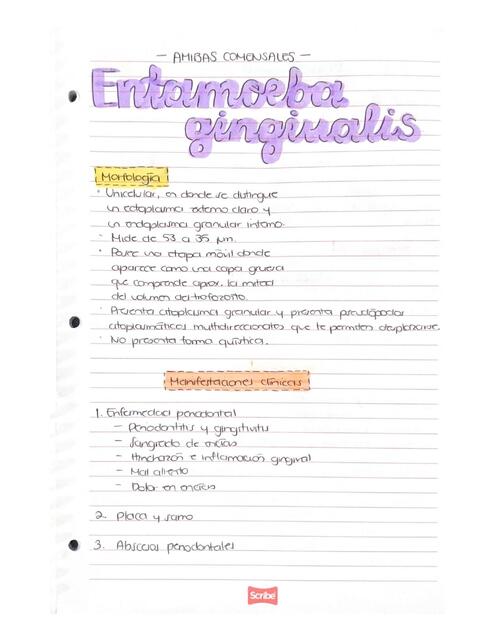 — AMIBAS COMENSALES —
Entamoeba
gingivalis
Morfología
· Unicelular, en donde se distingue
un ectoplasma externo claro y
un endoplasma granular interno.
· Mide de 53 a 35 µm.
· Posee una etapa móvil donde
aparece como una capa gruesa
que comprende aprox. la mitad
del volumen del trofozoito.
· Presenta citoplasma granular y presenta pseudópodos
citoplasmáticos multidireccionales que le permiten desplazarse.
· No presenta forma quística.
Manifestaciones clínicas
1. Enfermedad periodontal
— Periodontitis y gingivitis
— Sangrado de encías
— Hinchazón e inflamación gingival
— Mal aliento
— Dolor en encías
2. Placa y sarro
3. Abscesos periodontales
Scribe